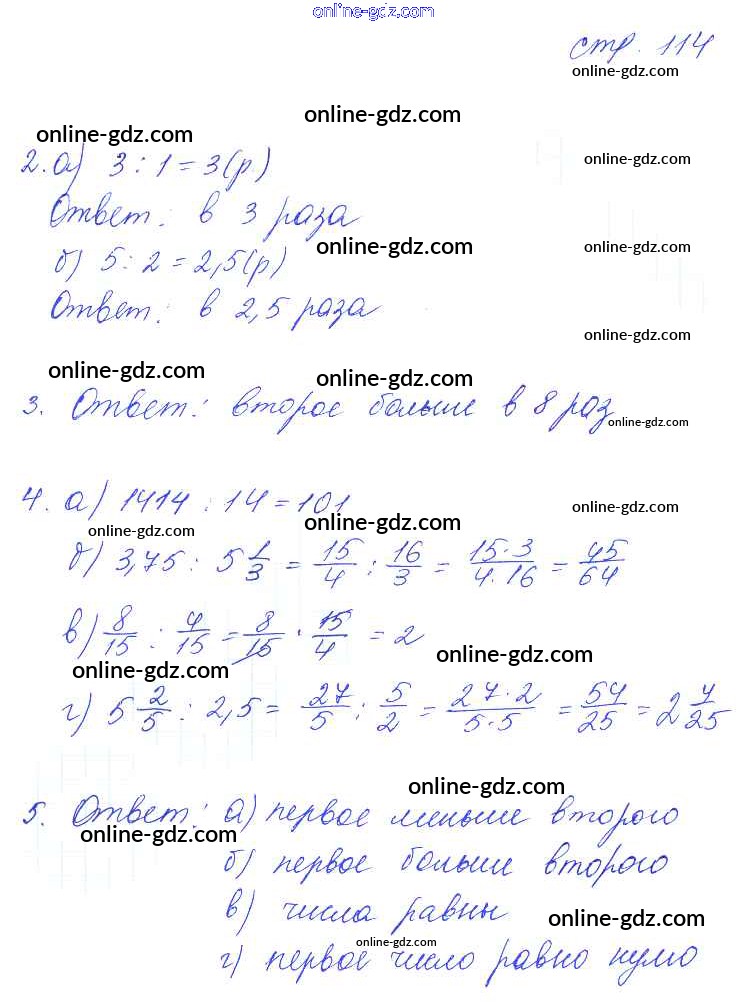 online-gdz.com
стр. 114
online-gdz.com
online-gdz.com
online-gdz.com
2. а) 3 : 1 = 3 (р)
online-gdz.com
Ответ: в 3 раза
online-gdz.com
online-gdz.com
б) 5 : 2 = 2,5 (р)
Ответ: в 2,5 раза
online-gdz.com
online-gdz.com
online-gdz.com
3. Ответ: второе больше в 8 раз
online-gdz.com
4. а) 1414 : 14 = 101
online-gdz.com
online-gdz.com
online-gdz.com
б) 3,75 : 5 1/3 = 15/4 : 16/3 = 15·3/4·16 = 45/64
в) 8/15 : 4/15 = 8/15 · 15/4 = 2
online-gdz.com
online-gdz.com
г) 5 2/5 : 2,5 = 27/5 : 5/2 = 27·2/5·5 = 54/25 = 2 4/25
online-gdz.com
5. Ответ: а) первое меньше второго
online-gdz.com
б) первое больше второго
в) числа равны
online-gdz.com
online-gdz.com
г) первое число равно нулю